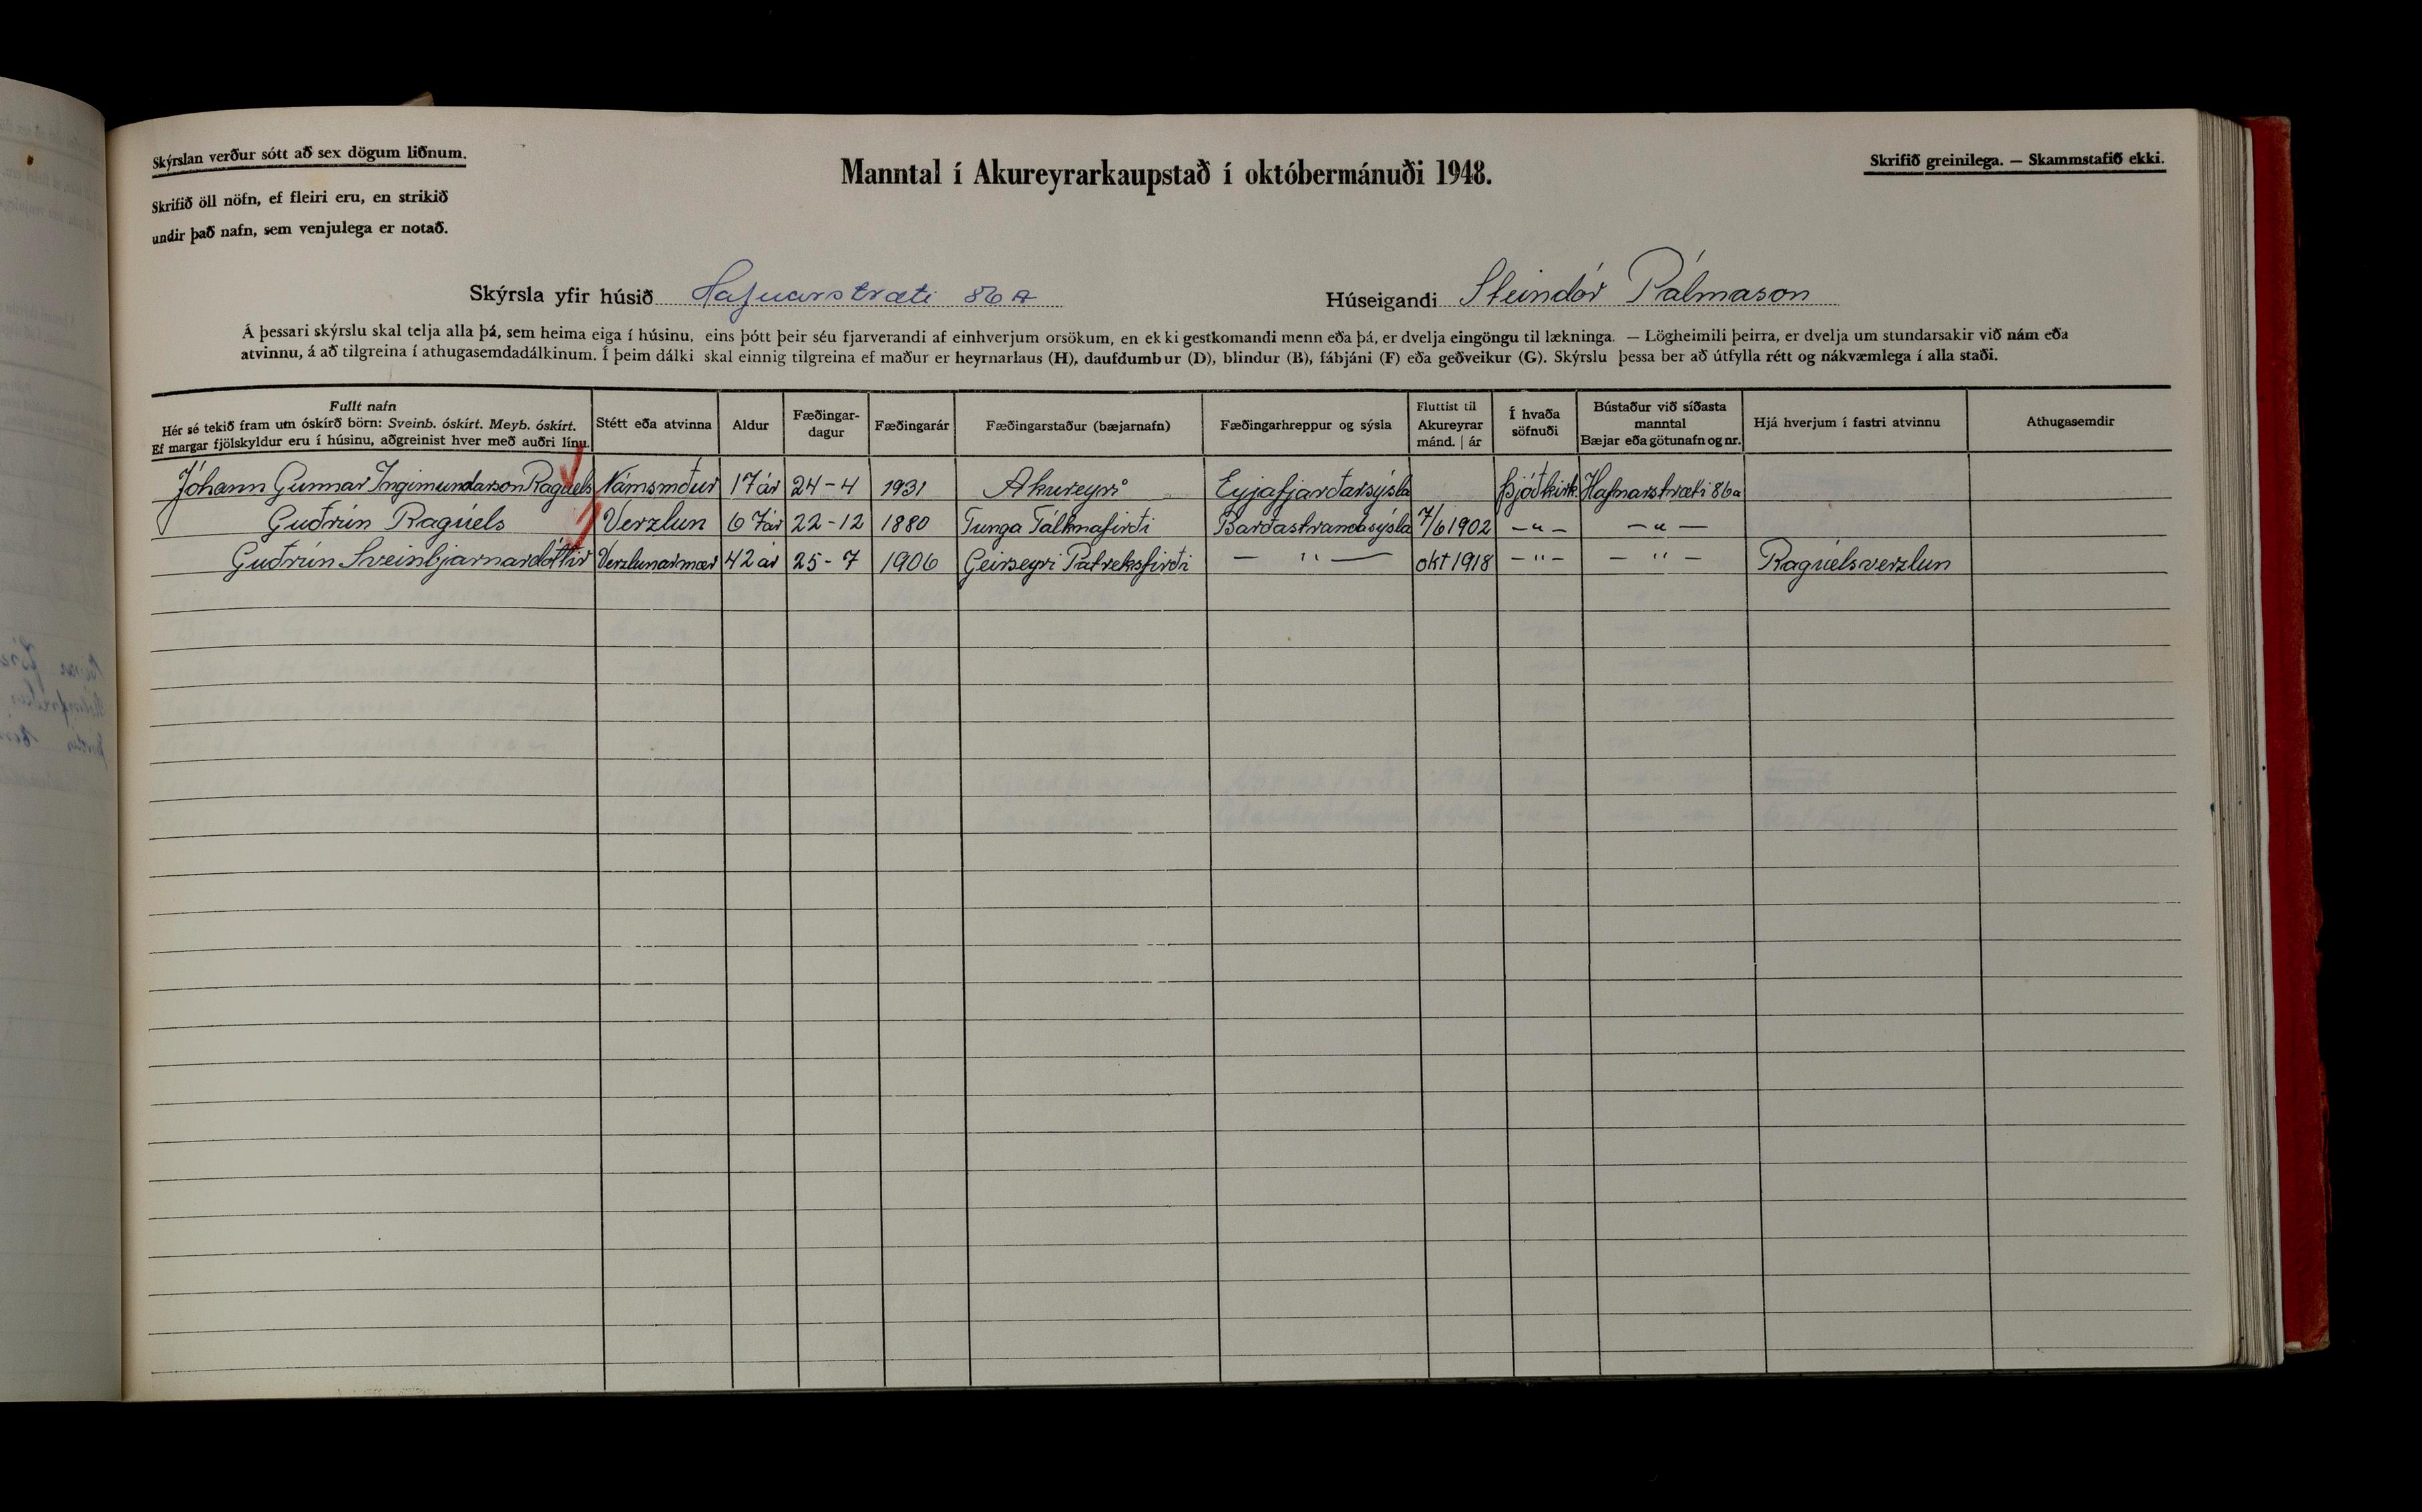 Skýrslan verður sótt að sex dögum liðnum.
Skrifið öll nöfn, ef fleiri eru, en strikið
undir það nafn, sem venjulega er notað.
Manntal í Akureyrarkaupstað í októbermánuði 1948.
Skrifið greinilega. — Skammstafið ekki.
Skýrsla yfir húsið Hafnarstræti 86 A
Húseigandi Steindór Pálmason
Á þessari skýrslu skal telja alla þá, sem heima eiga í húsinu, eins þótt þeir séu fjarverandi af einhverjum orsökum, en ekki gestkomandi menn eða þá, er dvelja eingöngu til lækninga. — Lögheimili þeirra, er dvelja um stundarsakir við nám eða
atvinnu, á að tilgreina í athugasemdadálkinum. Í þeim dálki skal einnig tilgreina ef maður er heyrnarlaus (H), daufdumbur (D), blindur (B), fábjáni (F) eða geðveikur (G). Skýrslu þessa ber að útfylla rétt og nákvæmlega í alla staði.
Fullt nafn
Hér sé tekið fram um óskírð börn: Sveinb. óskírt. Meyb. óskírt.
Ef margar fjölskyldur eru í húsinu, aðgreinist hver með auðri línu.
Stétt eða atvinna
Aldur
Fæðingar-
dagur
Fæðingarár
Fæðingarstaður (bæjarnafn)
Fæðingarhreppur og sýsla
Fluttist til
Akureyrar
mánd. | ár
Í hvaða
söfnuði
Bústaður við síðasta
manntal
Bæjar eða götunafn og nr.
Hjá hverjum í fastri atvinnu
Athugasemdir
Jóhann Gunnar Ingimundarson Ragúels Námsmður 17 ár 24-4 1931 Akureyri Eyjafjarðarsýsla Þjóðkirk. Hafnarstræti 86a
Guðrún Ragúels Verzlun 67ár 22-12 1880 Tunga Tálknafirði Barðastrandasýsla 7/6 1902 —"— —"—
Guðrún Sveinbjarnardóttir Verzlunarmær 42 ár 25-7 1906 Geirseyri Patreksfirði —"— okt 1918 —"— —"— Ragúelsverzlun